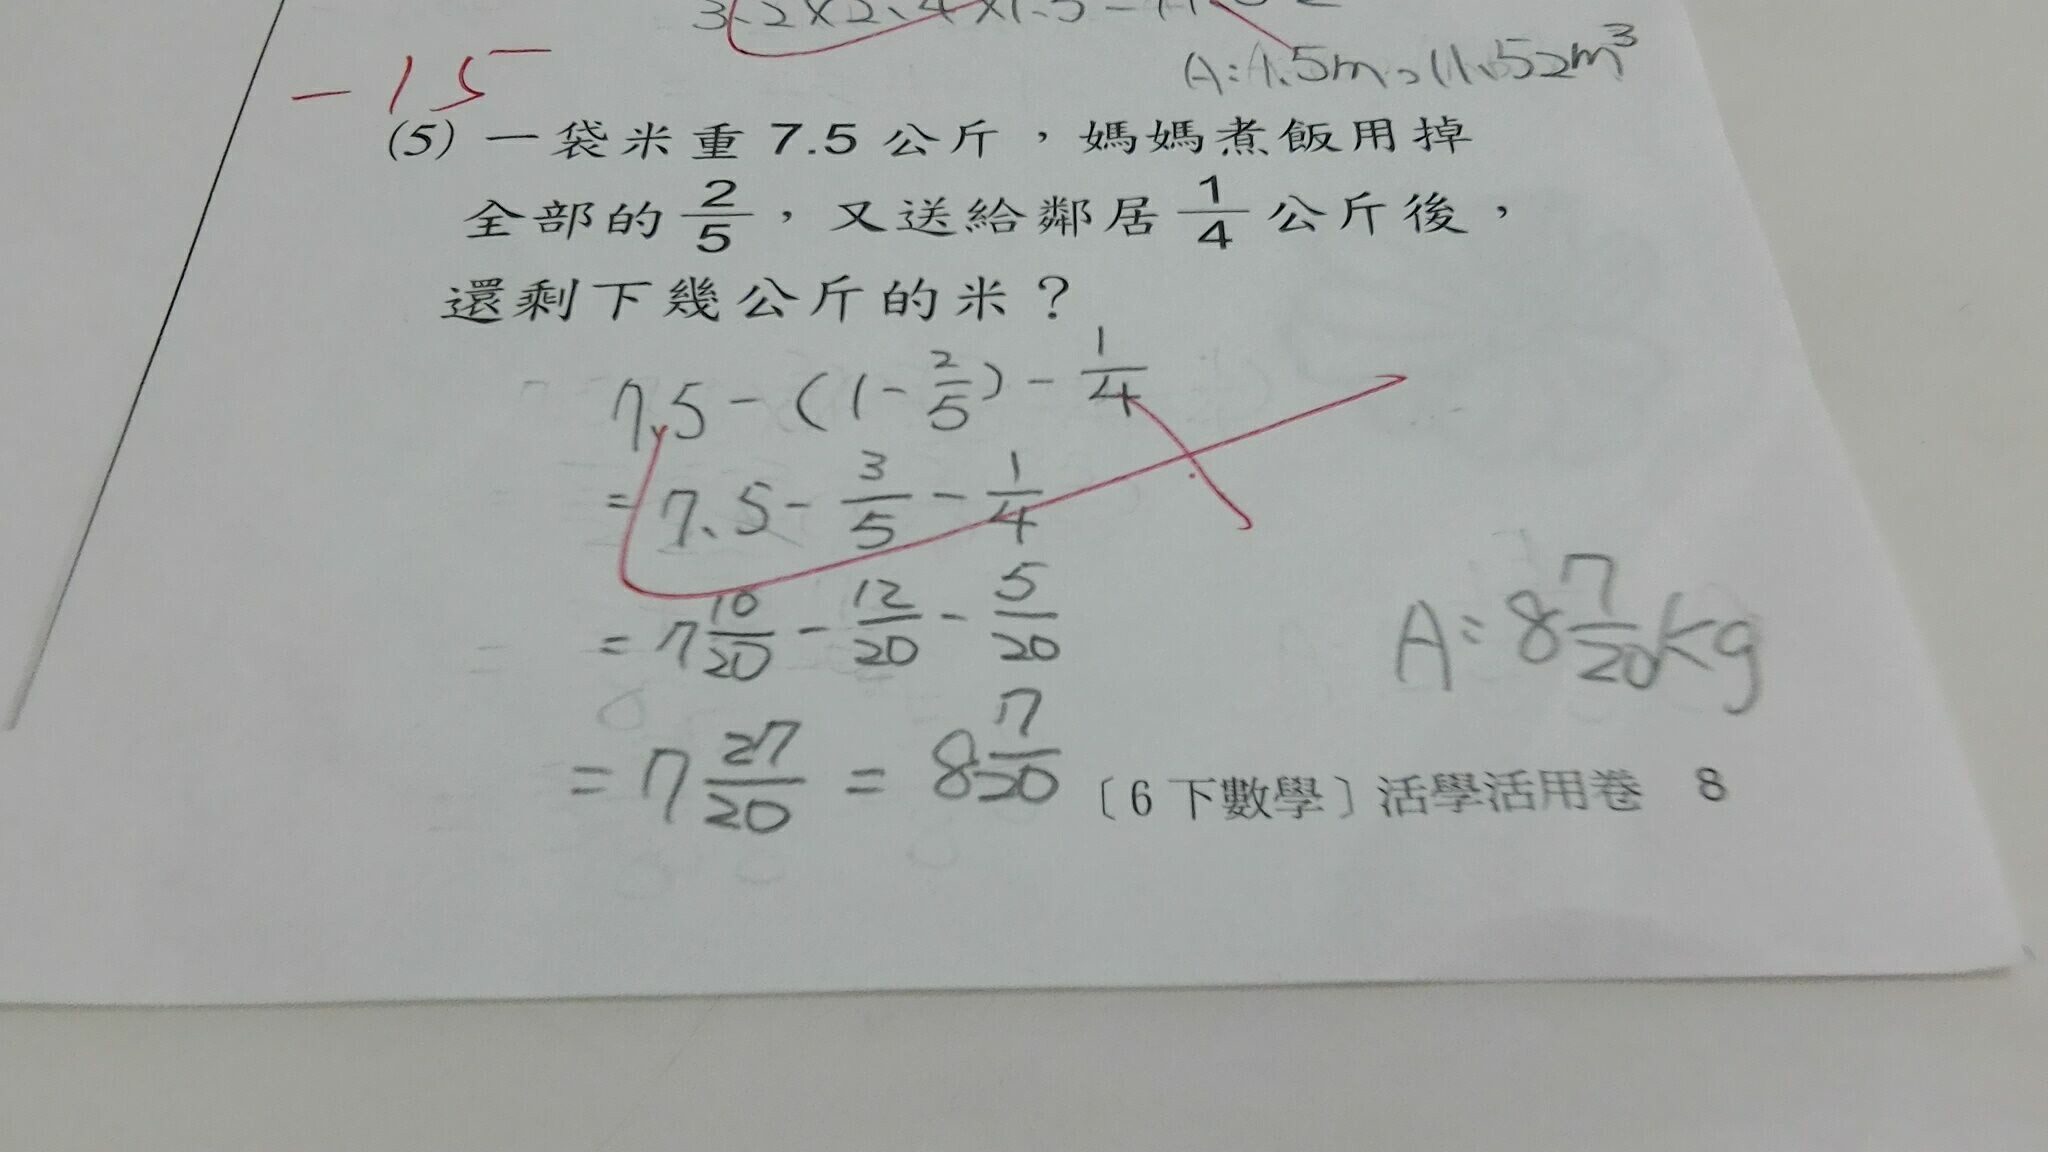 3.2×2.4×1.5=11.52
A:1.5m,11.52m³
-15
(5) 一袋米重 7.5 公斤，媽媽煮飯用掉
全部的 2/5，又送給鄰居 1/4 公斤後，
還剩下幾公斤的米？
7.5-(1-2/5)-1/4
=7.5-3/5-1/4
=7 10/20-12/20-5/20
=7 27/20=8 7/20
A:8 7/20kg
〔6下數學〕活學活用卷 8